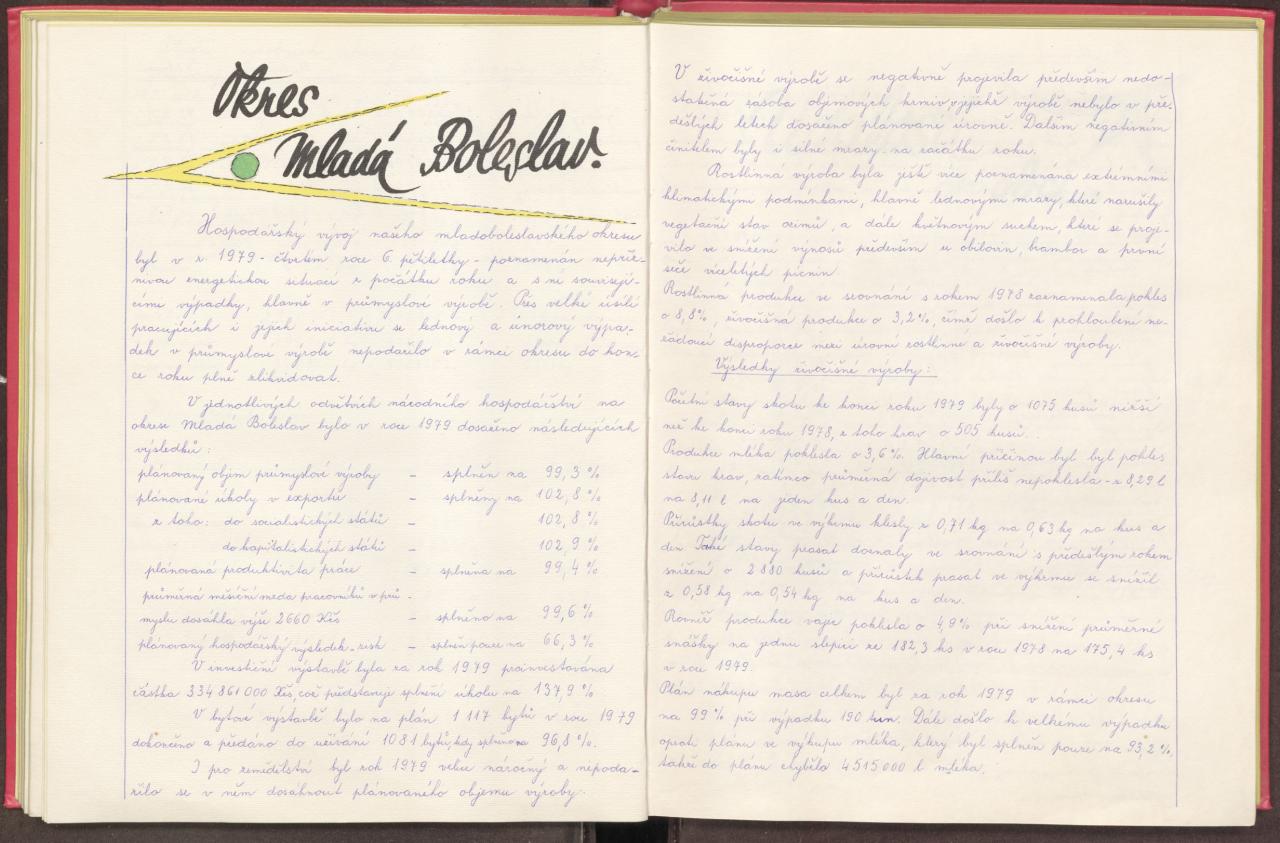 Okres
Mladá Boleslav.
Hospodářský vývoj našeho mladoboleslavského okresu
byl v r. 1979 - čtvrtém roce 6. pětiletky - poznamenán nepříz-
nivou energetickou situací z počátku roku a s ní souvisejí-
cími výpadky, hlavně v průmyslové výrobě. Přes velké úsilí
pracujících i jejich iniciativu se lednový a únorový výpa-
dek v průmyslové výrobě nepodařilo v rámci okresu do kon-
ce roku plně zlikvidovat.
V jednotlivých odvětvích národního hospodářství na
okrese Mladá Boleslav bylo v roce 1979 dosaženo následujících
výsledků:
plánovaný objem průmyslové výroby - splněn na 99,3 %
plánované úkoly v exportu - splněny na 102,8 %
z toho: do socialistických států - 102,8 %
do kapitalistických států - 102,9 %
plánovaná produktivita práce - splněna na 99,4 %
průměrná měsíční mzda pracovníků v prů-
myslu dosáhla výše 2660 Kčs - splněno na 99,6 %
plánovaný hospodářský výsledek - zisk - splněn pouze na 66,3 %
V investiční výstavbě byla za rok 1979 proinvestována
částka 334 861 000 Kčs, což představuje splnění úkolu na 137,9 %
V bytové výstavbě bylo na plán 1 117 bytů v roce 1979
dokončeno a předáno do užívání 1081 bytů, tedy splněno na 96,8 %.
I pro zemědělství byl rok 1979 velice náročný a nepoda-
řilo se v něm dosáhnout plánovaného objemu výroby.
V živočišné výrobě se negativně projevila především nedo-
statečná zásoba objemových krmiv, v jejichž výrobě nebylo v pře-
dešlých letech dosaženo plánované úrovně. Dalším negativním
činitelem byly i silné mrazy na začátku roku.
Rostlinná výroba byla ještě více poznamenána extrémními
klimatickými podmínkami, hlavně lednovými mrazy, které narušily
vegetační stav ozimů, a dále květnovým suchem, které se proje-
vilo ve snížení výnosů především u obilovin, brambor a první
seče víceletých pícnin
Rostlinná produkce ve srovnání s rokem 1978 zaznamenala pokles
o 8,8%, živočišná produkce o 3,2%, čímž došlo k prohloubení ne-
žádoucí disproporce mezi úrovní rostlinné a živočišné výroby.
Výsledky živočišné výroby:
Početní stavy skotu ke konci roku 1979 byly o 1075 kusů nižší
než ke konci roku 1978, z toho krav o 505 kusů.
Produkce mléka poklesla o 3,6%. Hlavní příčinou byl byl pokles
stavu krav, zatímco průměrná dojivost příliš nepoklesla - z 8,29 l
na 8,11 l na jeden kus a den.
Přírůstky skotu ve výkrmu klesly z 0,71 kg na 0,63 kg na kus a
den. Také stavy prasat doznaly ve srovnání s předešlým rokem
snížení o 2 880 kusů a přírůstek prasat ve výkrmu se snížil
z 0,58 kg na 0,54 kg na kus a den.
Rovněž produkce vajec poklesla o 4,9% při snížení průměrné
snášky na jednu slepici ze 182,3 ks v roce 1978 na 175,4 ks
v roce 1979.
Plán nákupu masa celkem byl za rok 1979 v rámci okresu
na 99% při výpadku 190 tun. Dále došlo k velkému výpadku
oproti plánu ve výkupu mléka, který byl splněn pouze na 93,2 %,
takže do plánu chybělo 4 515 000 l mléka.